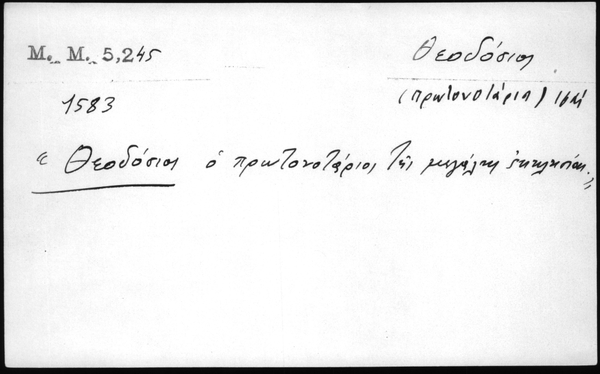 M. M. 5,245
Θεοδόσιος
(πρωτονοτάριος)
1583
“ Θεοδόσιος ὁ πρωτονοτάριος τῆς μεγάλης ἐκκλησίας. ”